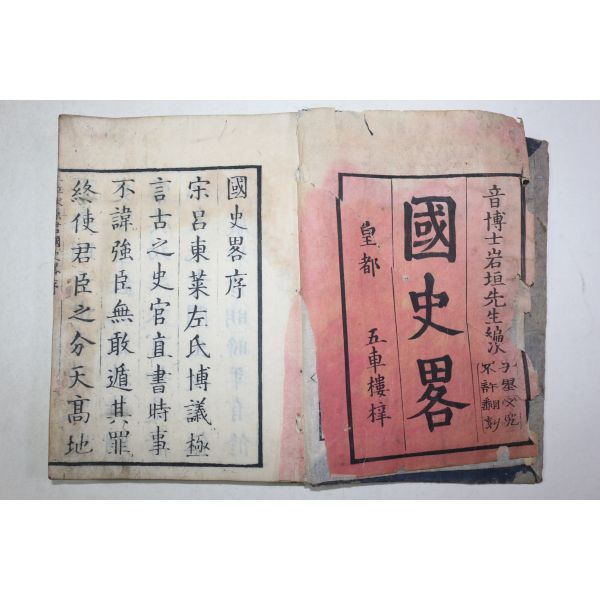 音博士岩垣先生編次
不許翻刻
國史畧
皇都
五車樓梓
國史畧序
宋呂東萊左氏博議極
言古之史官直書時事
不諱強臣無敢遁其罪
終使君臣之分天髙地